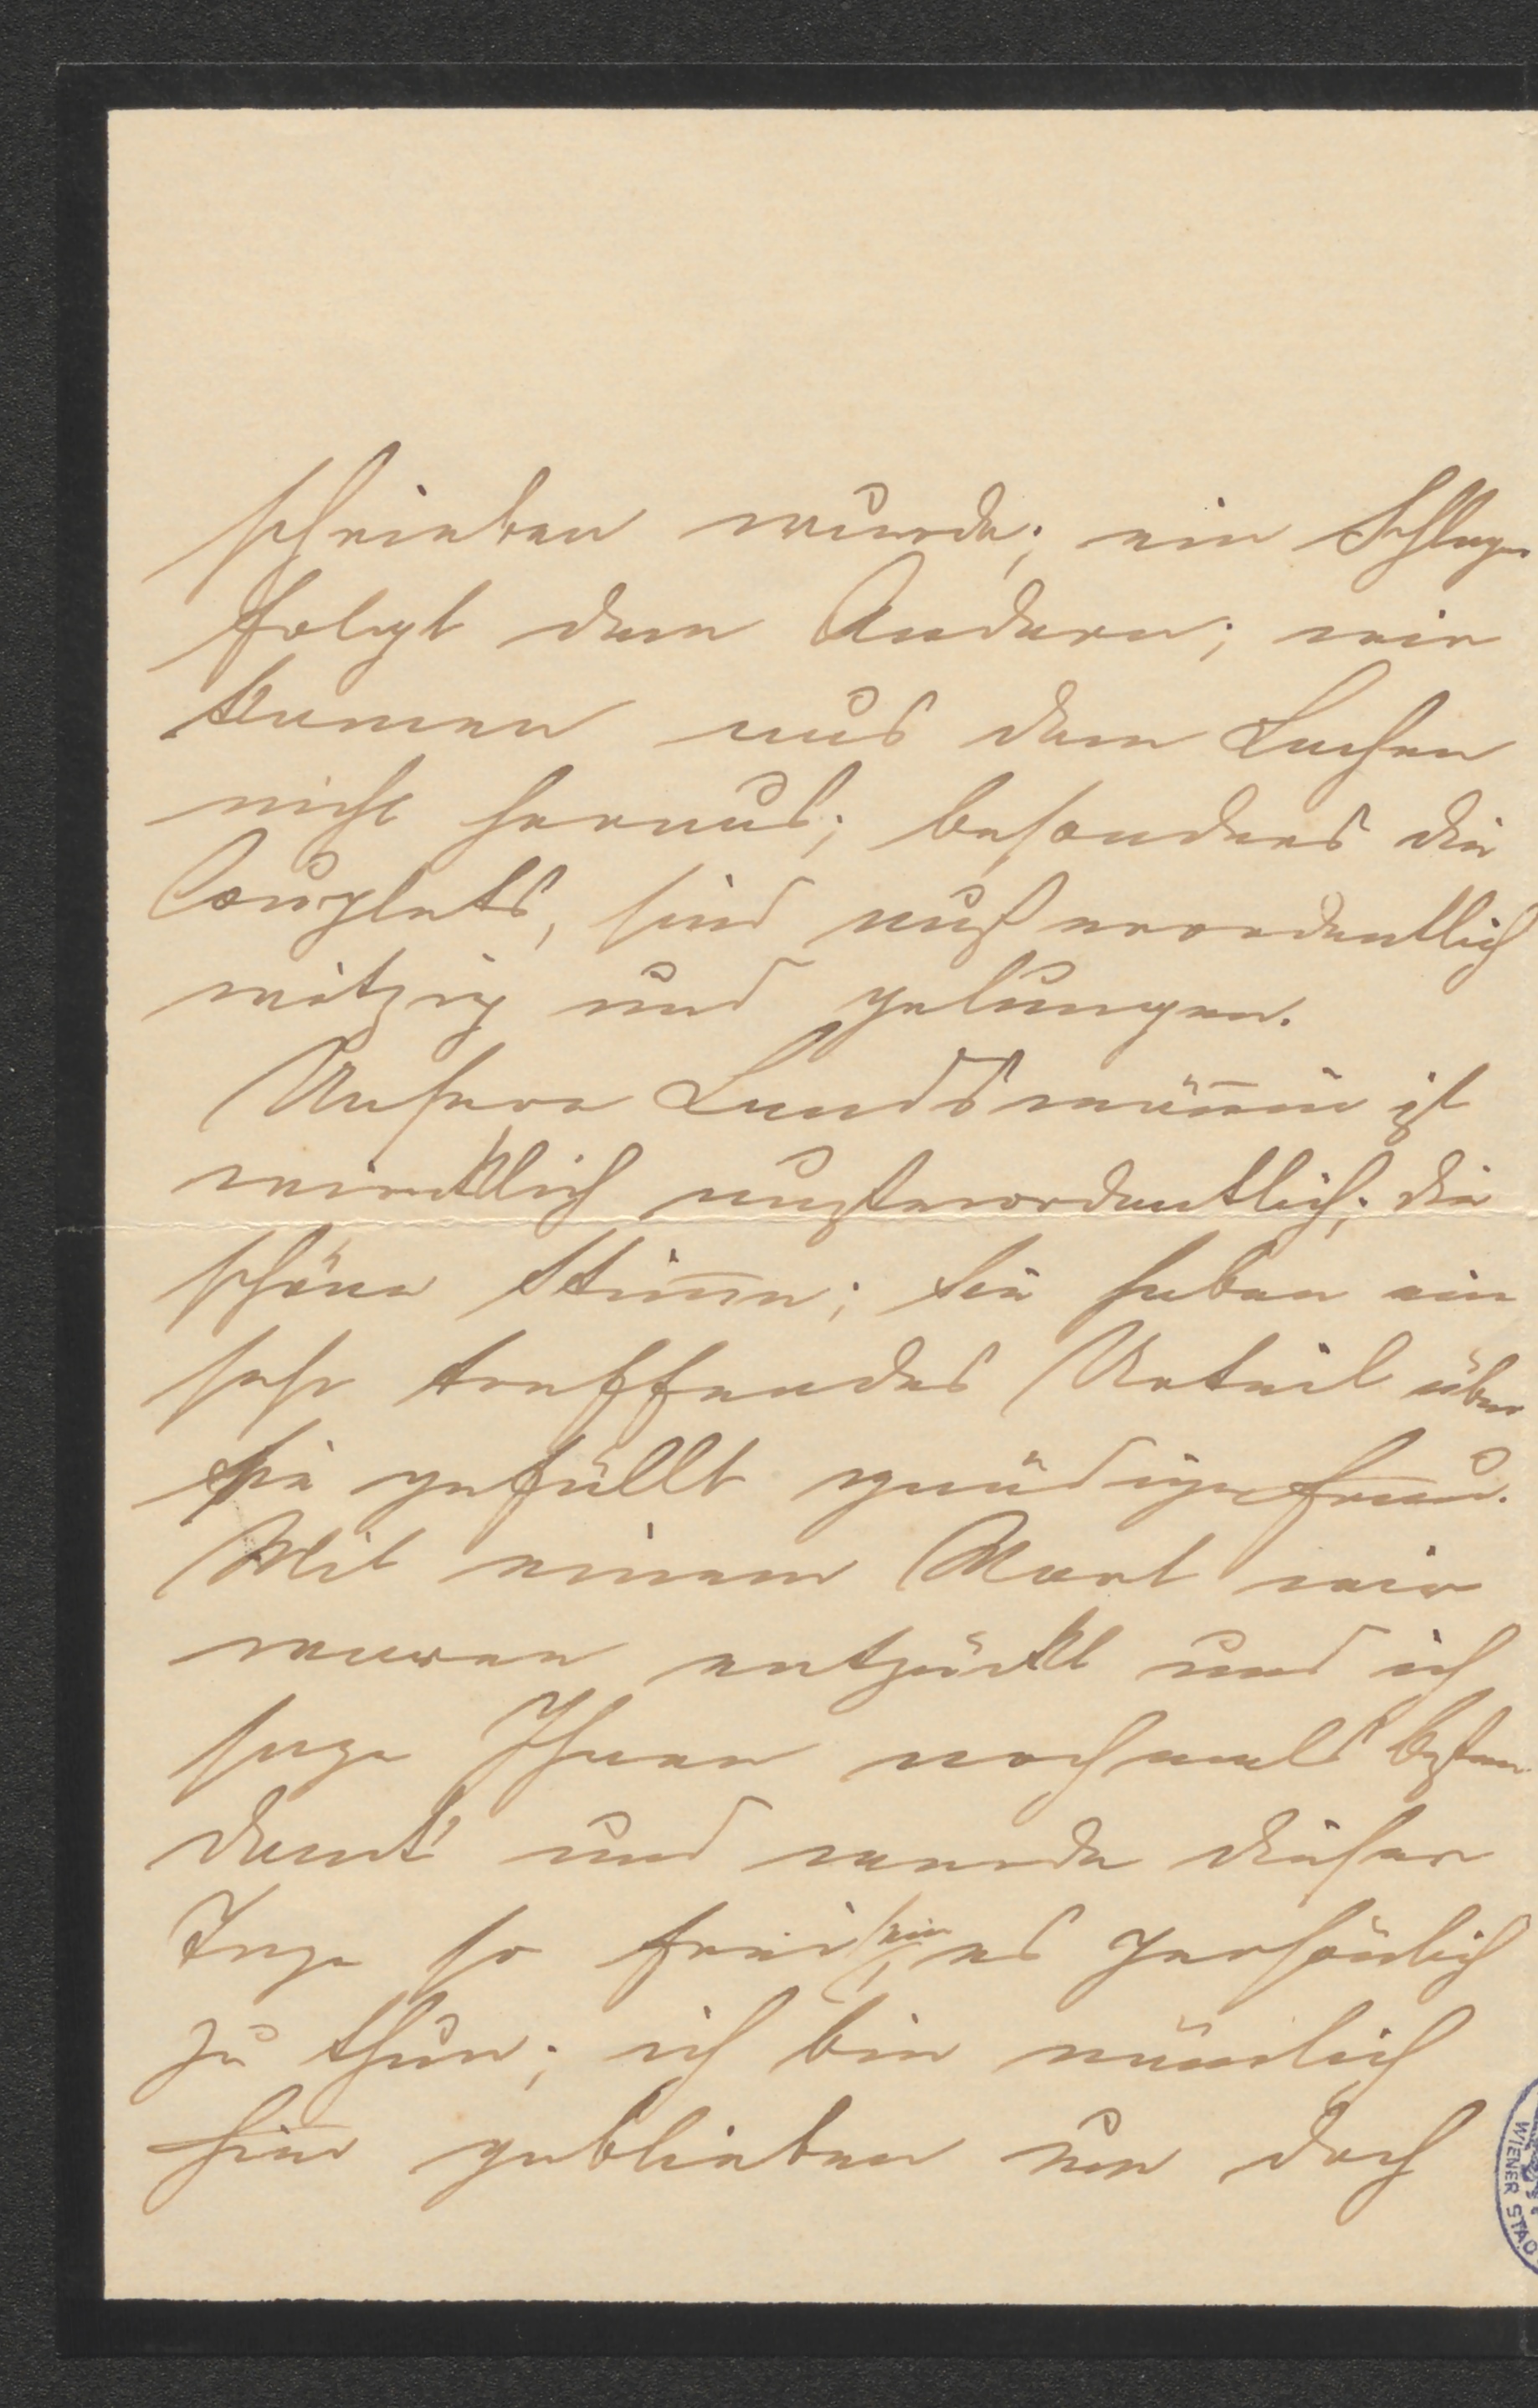 schrieben wurde; ein Schlager
folgt dem Andern; wir
kamen aus dem Lachen
nicht heraus; besonders die
Couplets, sind außerordentlich
witzig und gelungen.
Unsere Landsmän̄in ist
wirklich außerordentlich; die
schöne Stim̄e; Sie haben ein
sehr treffendes Urteil über
sie gefällt gnädige Frau.
Mit einem Wort wir
waren entzückt und ich
sage Ihnen nochmals besten
Dank und werde dieser
Tage so frei sein, es persönlich
zu thun; ich bin nämlich
hier geblieben um doch
WIENER STAD